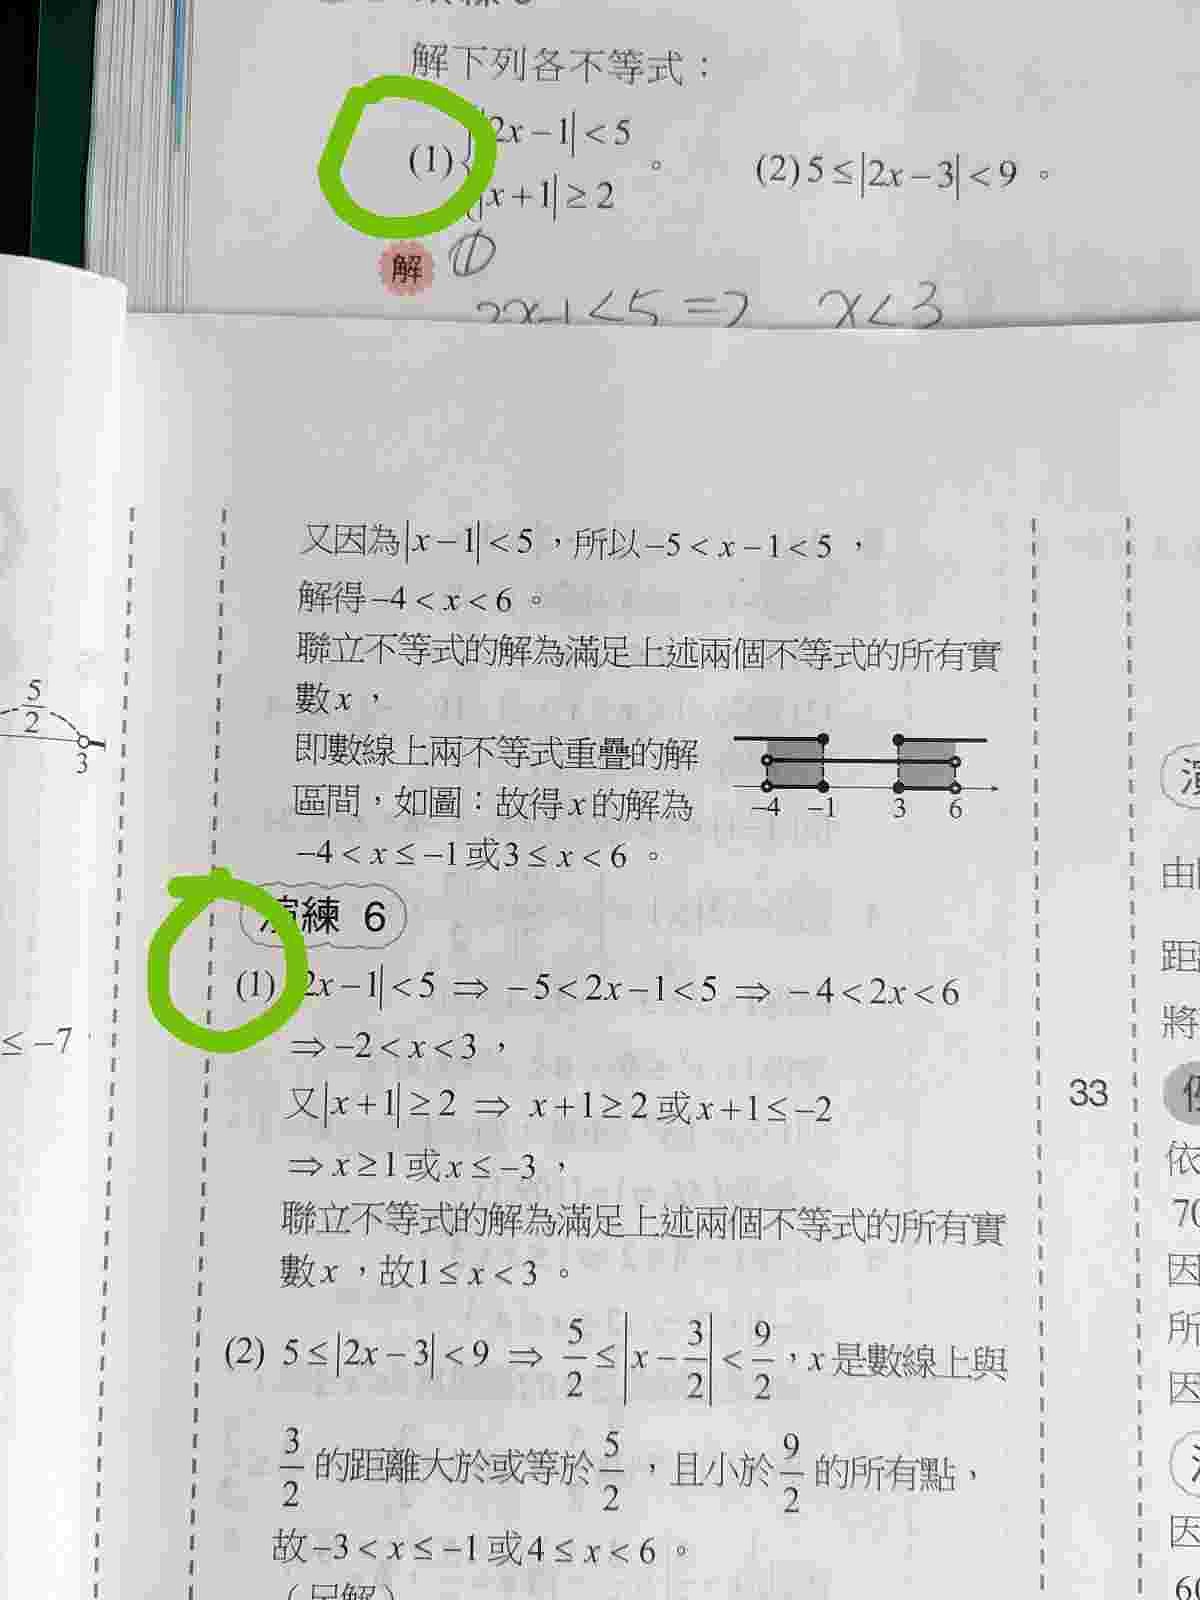 解下列各不等式：
(1) { |2x−1|<5
|x+1|≥2 。
(2) 5≤|2x−3|<9 。
解 ①
2x-1<5 => x<3
又因為|x−1|<5，所以−5<x−1<5，
解得−4<x<6 。
聯立不等式的解為滿足上述兩個不等式的所有實
數x，
即數線上兩不等式重疊的解
區間，如圖：故得x的解為
−4<x≤−1或3≤x<6 。
−4 −1 3 6
演練 6
(1) |2x−1|<5 ⇒ −5<2x−1<5 ⇒ −4<2x<6
⇒−2<x<3，
又|x+1|≥2 ⇒ x+1≥2或x+1≤−2
⇒x≥1或x≤−3，
聯立不等式的解為滿足上述兩個不等式的所有實
數x，故1≤x<3 。
(2) 5≤|2x−3|<9 ⇒ 5/2≤|x−3/2|<9/2，x是數線上與
3/2的距離大於或等於5/2，且小於9/2的所有點，
故−3<x≤−1或4≤x<6 。
(另解)
5/2
3
≤ −7
33
由
距
將
依
70
因
所
因
因
60